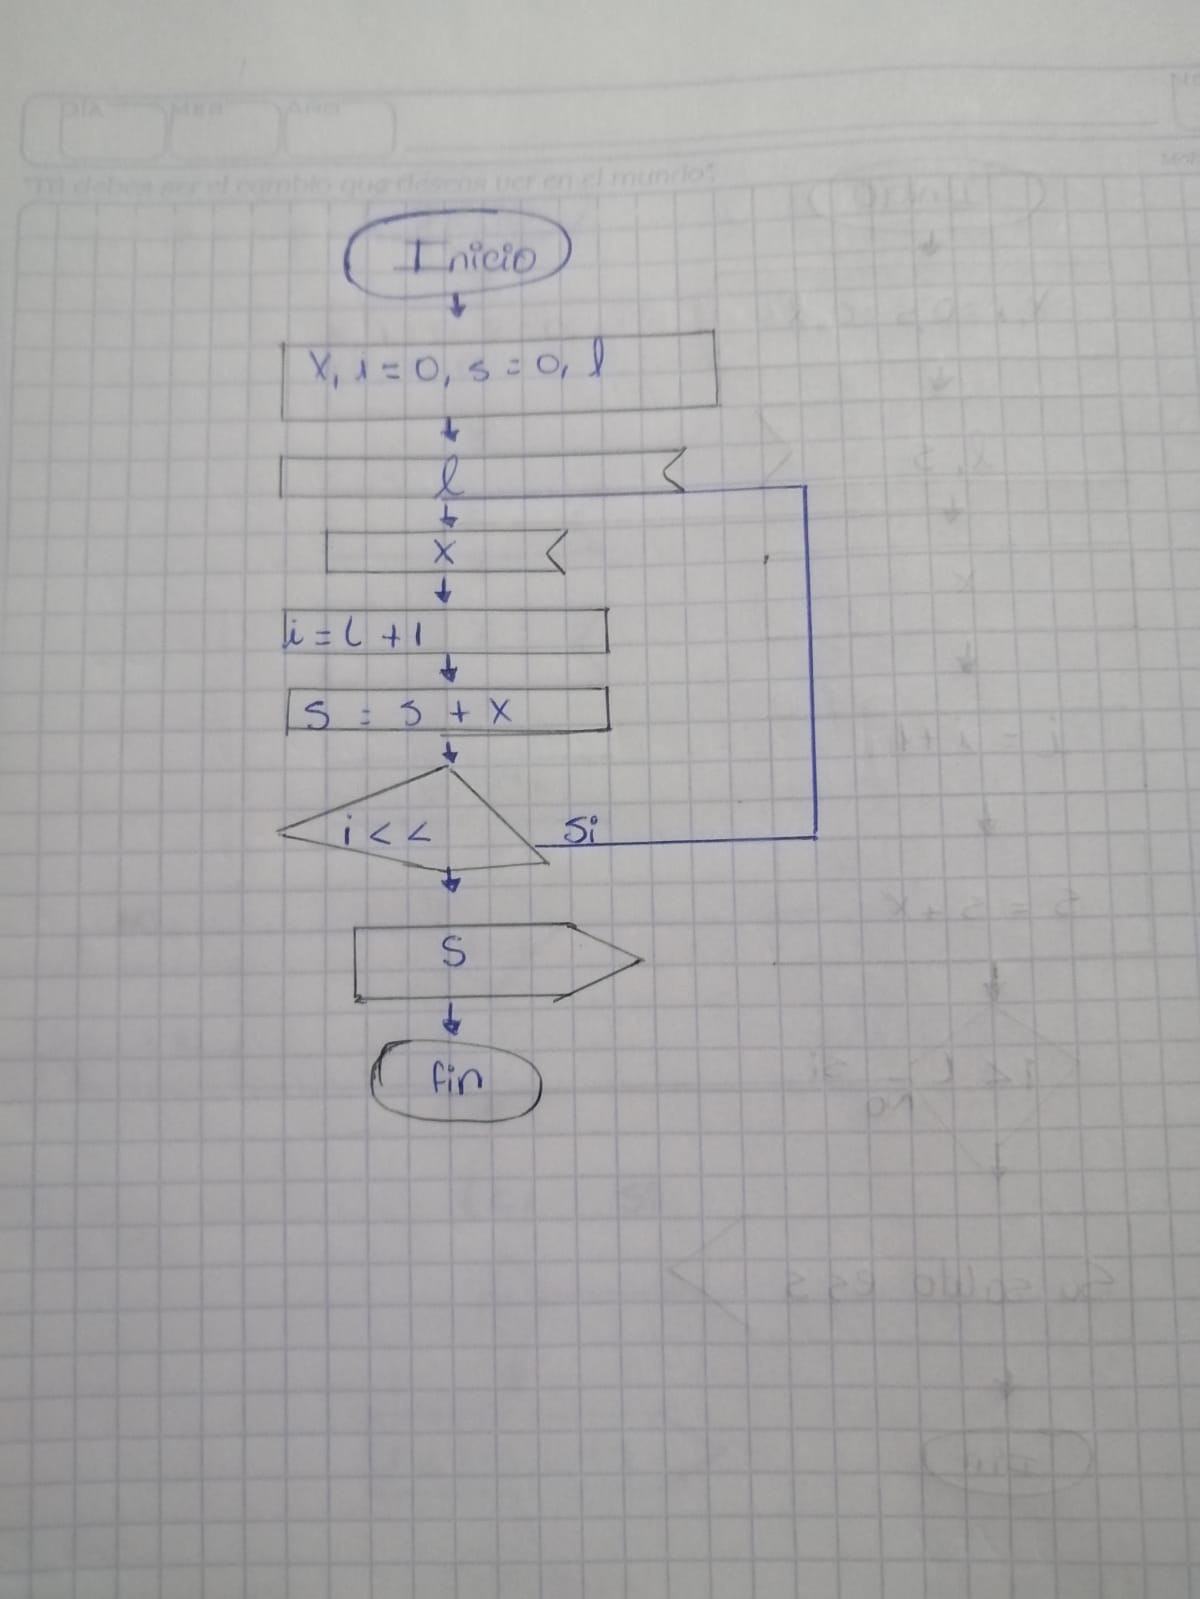 DÍA MES AÑO
"Tú debes ser el cambio que deseas ver en el mundo".
Inicio
X, i = 0, s = 0, l
l
X
i = i + 1
S = S + X
i < <
Si
S
fin